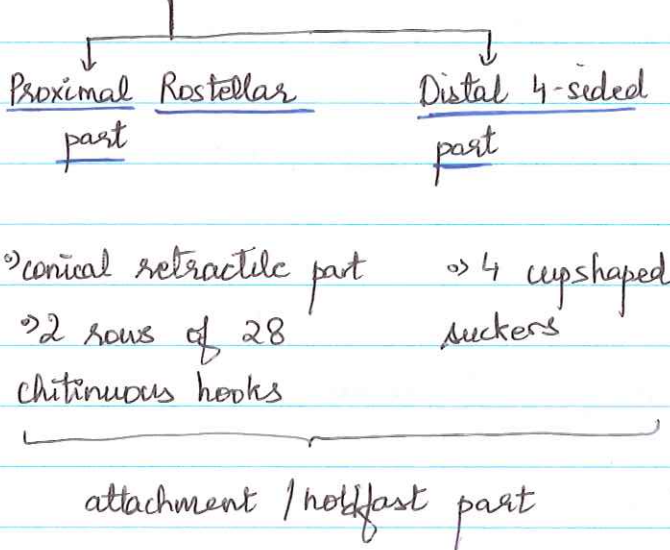 Proximal Rostellar
part
Distal 4-sided
part
°) conical retractile part
°) 2 rows of 28
chitinuous hooks
°) 4 cupshaped
suckers
attachment / holdfast part